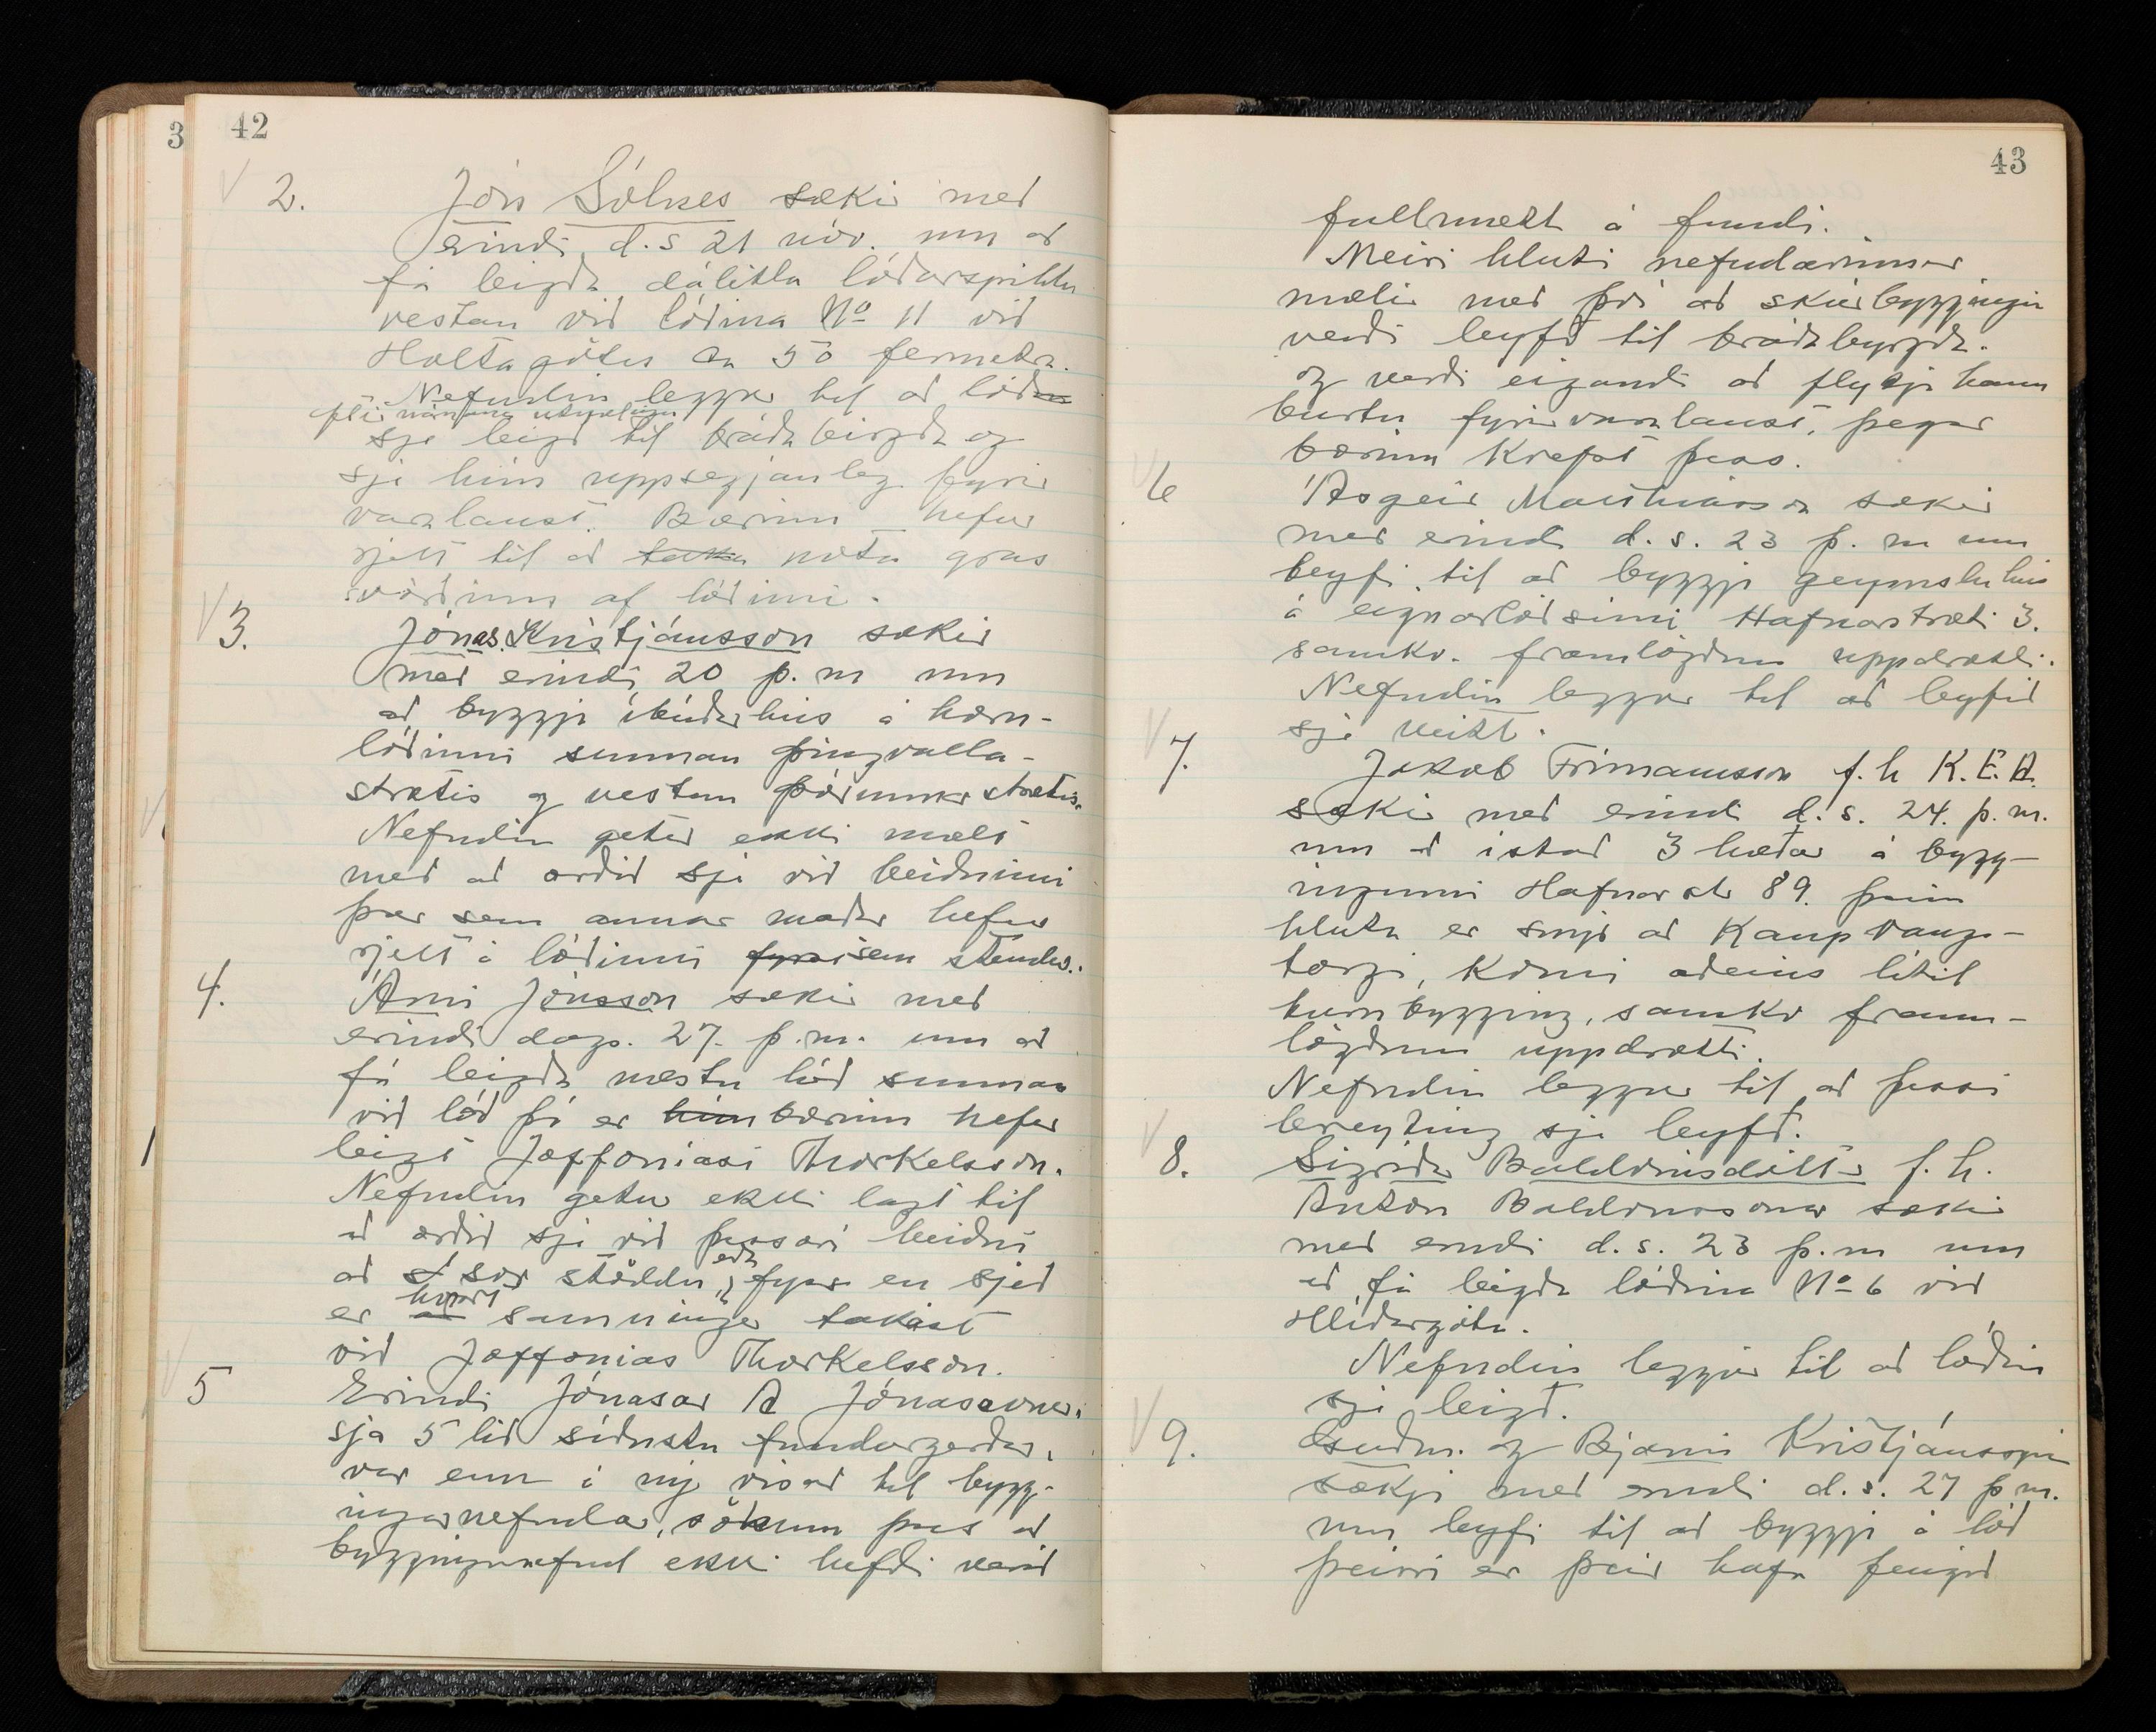 3
42
2. Jón Sólnes sækir með
erindi d.s 21 nóv. um að
fá leigða dálitla lóðarspildu
vestan við lóðina No 11 við
Holtagötu ca 50 fermetra.
Nefndin leggur til að lóðin
nánara útmælingu
sje leigð til bráðabirgða og
sje hún uppsegjanleg fyrir
varalaust. Bærinn hefur
rjett til að taka nota gras
svörðinn af lóðinni.
3. Jónas Kristjánsson sækir
með erindi 20 þ.m um
að byggja íbúðarhús á horn-
lóðinni sunnan þingvalla-
strætis og vestan þórunnarstrætis.
Nefndin getur ekki mælt
með að orðið sje við beiðninni
þar sem annar maður hefur
rjett á lóðinni sem stendur.
4. Árni Jónsson sækir með
erindi dags. 27. þ.m. um að
fá leigða næstu lóð sunnan
við lóð þá er hún bærinn hefur
leigt Joffoníasi Thorkelsson.
Nefndin getur ekki lagt til
að orðið sje við þessari beiðni
að svo stöddu, eða fyr en sjeð
er hvort samningar takast
við Joffonias Thorkelsson.
5 Erindi Jónasar A Jónassonar,
sjá 5 lið síðustu fundargerðar,
var enn á ný vísað til bygg-
inganefndar, sökum þess að
bygginganefnd ekki hefði verið
43
fullmætt á fundi.
Meiri hluti nefndarinnar
mælir með því að skúrbyggingin
verði leyfð til bráðabyrgða.
og verði eigandi að flytja hann
burtu fyrirvaralaust, þegar
bærinn krefst þess.
6 Ásgeir Matthíasson sækir
með erindi d.s. 23 þ.m um
leyfi til að byggja geymsluhús
á eignarlóð sinni Hafnarstræti 3.
samkv. framlögðum uppdrætti.
Nefndin leggur til að leyfið
sje veitt.
7. Jakob Frímannsson f.h K.E.A.
sækir með erindi d.s. 24. þ.m.
um að í stað 3 hæðar á bygg-
ingunni Hafnarstr 89. þeim
hluta er snýr að Kaupvangs-
torgi, komi aðeins lítil
turnbygging, samkv fram-
lögðum uppdrætti.
Nefndin leggur til að þessi
breyting sje leyfð.
8. Sigríður Baldvinsdóttir f.h.
Antons Baldvinssonar sækir
með erindi d.s. 23 þ.m um
að fá leigða lóðina No 6 við
Hlíðargötu.
Nefndin leggur til að lóðin
sje leigð.
9. Guðm. og Bjarni Kristjánssynir
sækja með erindi d.s. 27 þ m.
um leyfi til að byggja á lóð
þeirri er þeir hafa fengið